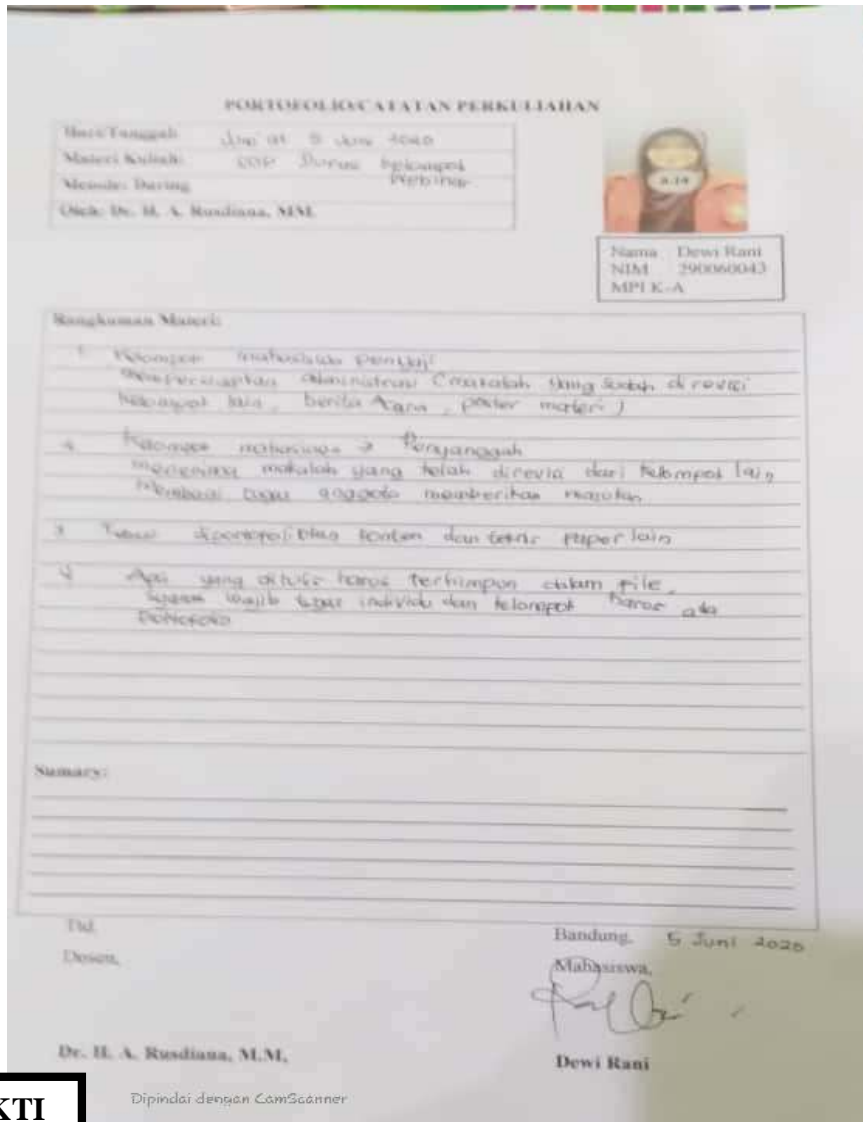 PORTOFOLIO/CATATAN PERKULIAHAN
Hari/Tanggal: Jum'at 5 Juni 2020
Materi Kuliah: kelompok
Webinar
Metode: Daring
Oleh: Dr. H. A. Rusdiana, MM.
A.14
Nama Dewi Rani
NIM 290060043
MPI K-A
Rangkuman Materi:
1 Kelompok mahasiswa penyaji
mempersiapkan administrasi (makalah yang sudah direvisi
kelompok lain, berita Acara, poster materi)
Kelompok mahasiswa → Penyanggah
menerima makalah yang telah direvisi dari kelompok lain
Membagi tugas anggota memberikan masukan
3 konten dan teknis paper lain
4 Apa yang ditulis harus terhimpun dalam file,
wajib tugas individu dan kelompok harus ada
Sumary:
Ttd.
Dosen,
Bandung, 5 Juni 2020
Mahasiswa,
Dr. H. A. Rusdiana, M.M,
Dewi Rani
KTI
Dipindai dengan CamScanner